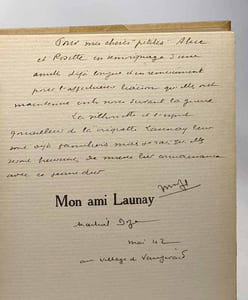 Pour mes chères petites Alice
et Rosette en témoignage d'une
amitié déjà longue et en remerciement
pour l'affectueuse liaison qu'elles ont
maintenue entre nous durant la guerre
La silhouette et l'esprit
de la Launay leur
sont déjà familiers mais je sais qu'elles
seront heureuses de faire connaissance
avec ce
Mon ami Launay
mai 42
au village de Vaugirard